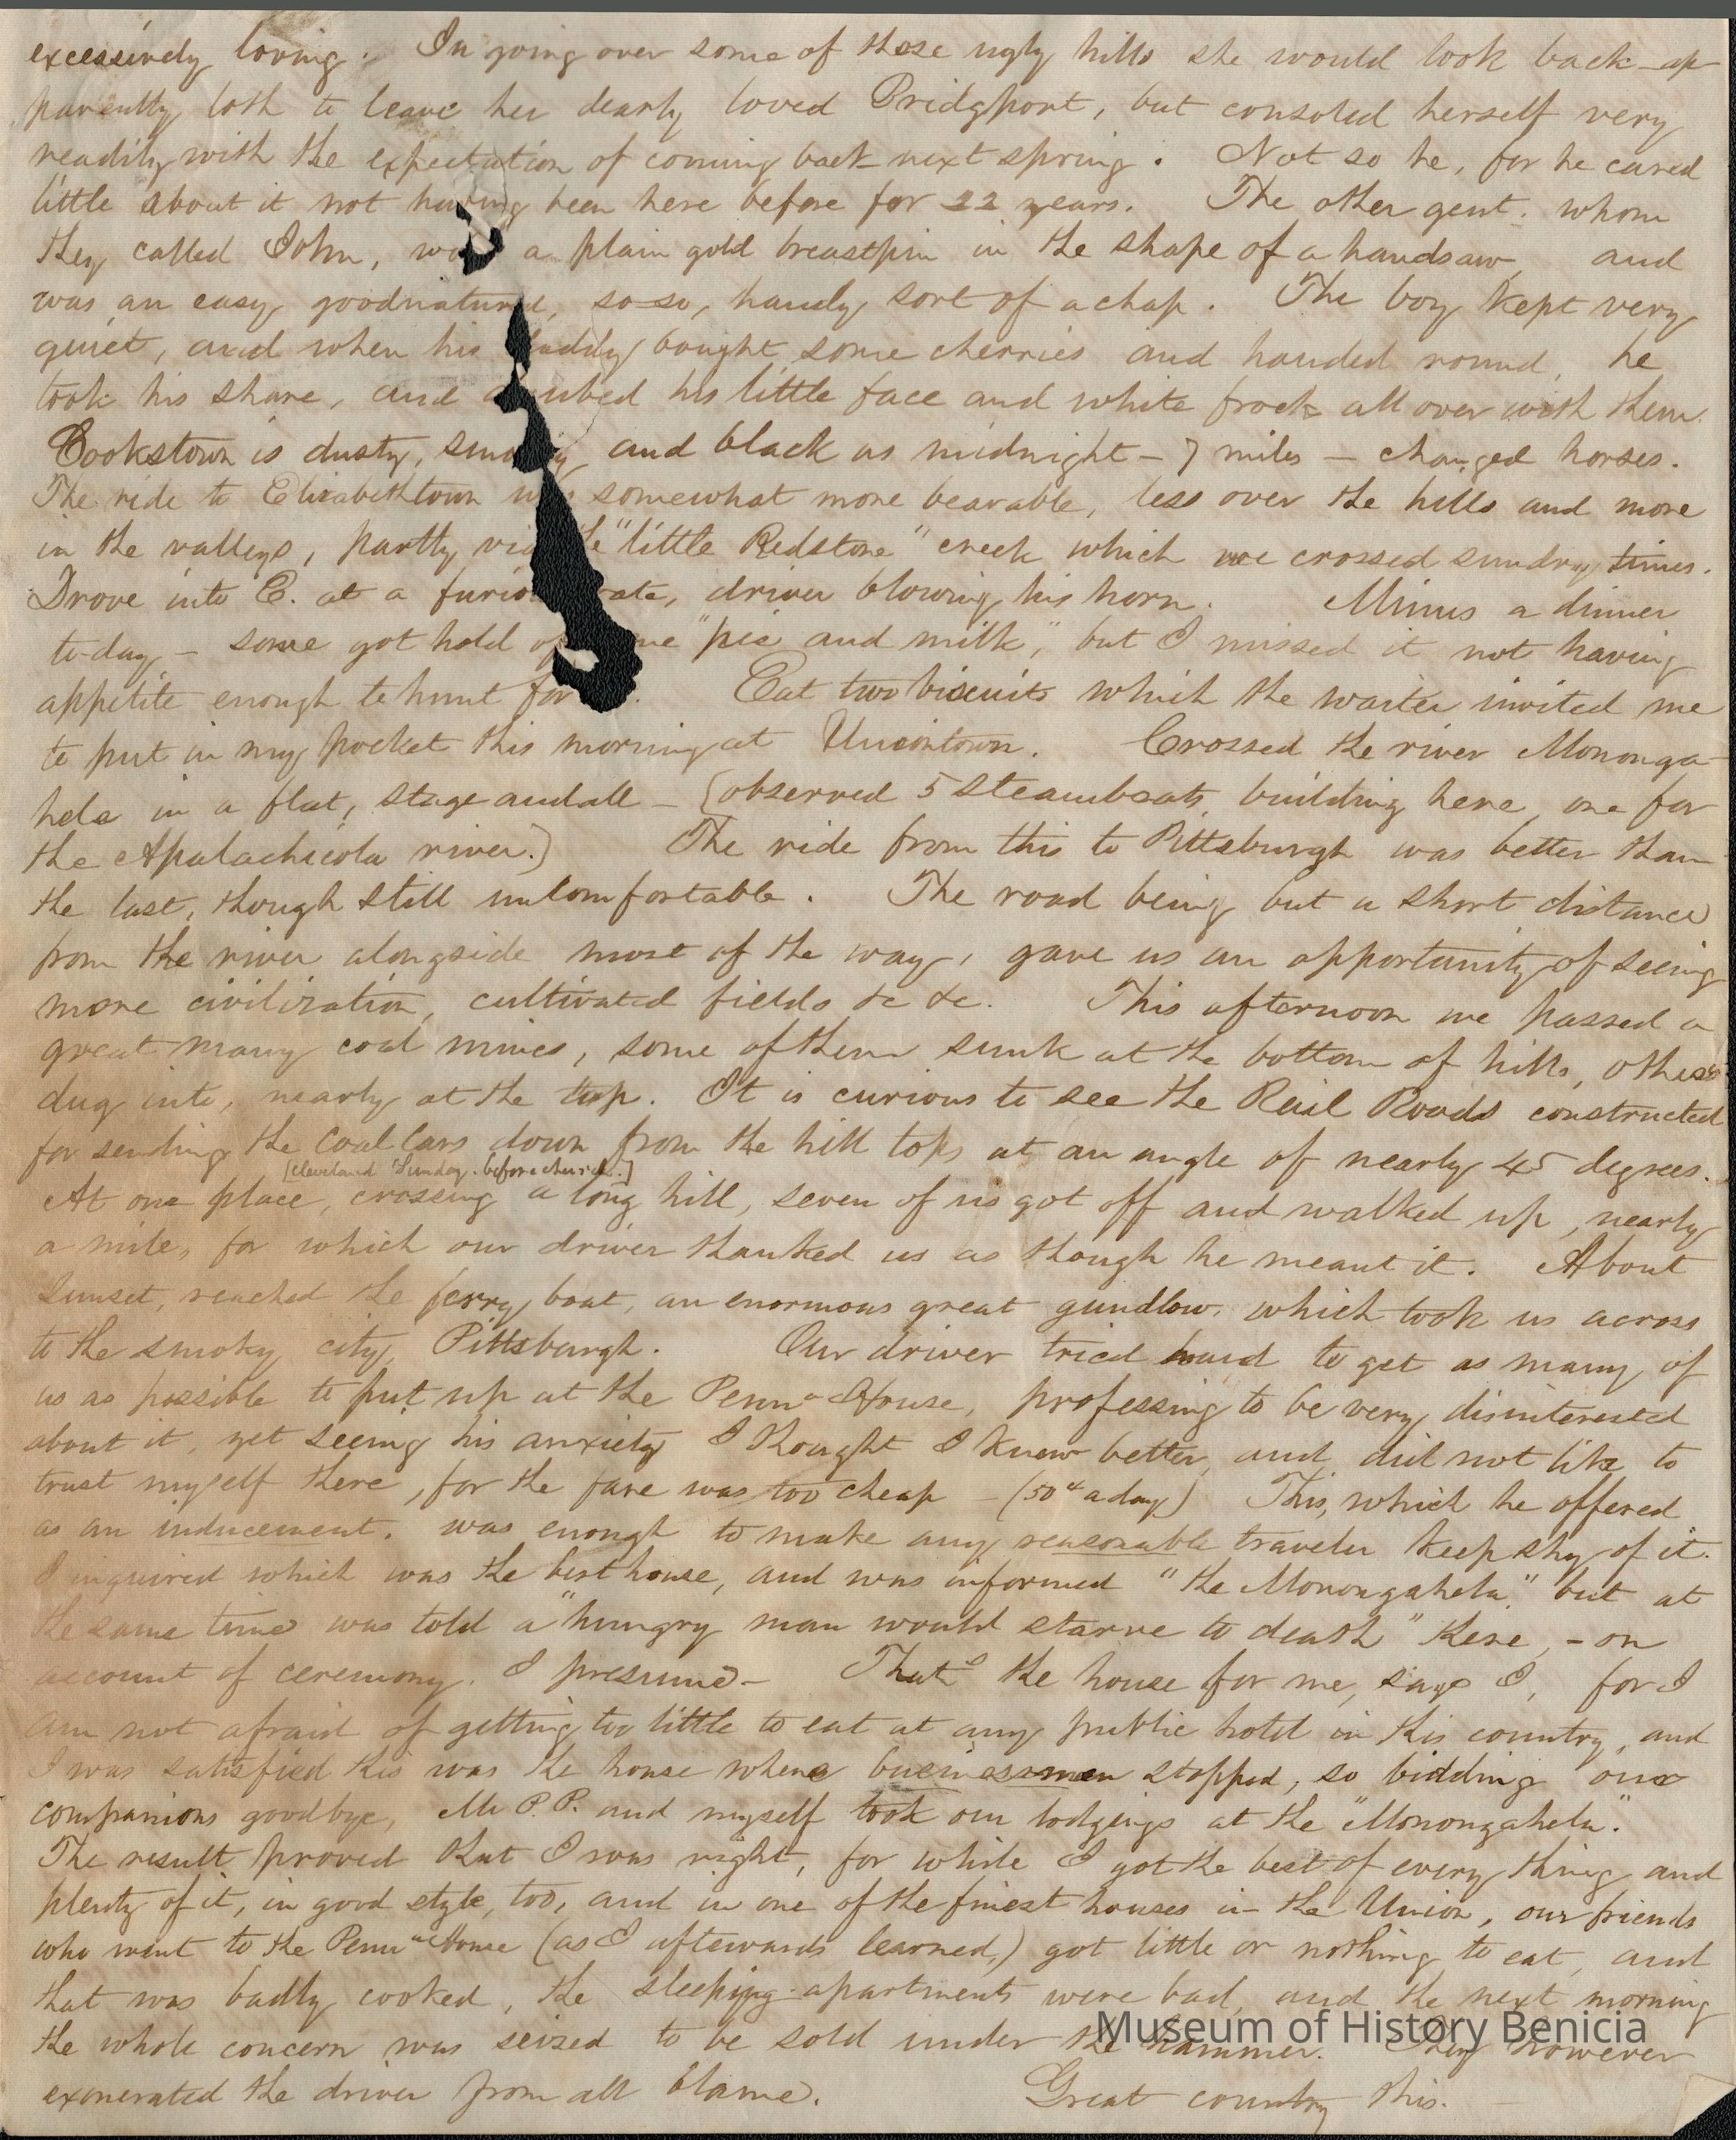 excessively loving. In going over some of these ugly hills she would look back ap-
parently loth to leave her dearly loved Bridgport, but consoled herself very
readily with the expectation of coming back next spring. Not so he, for he cared
little about it not having been here before for 22 years. The other gent. whom
they called John, wo a plain gold breastpin in the shape of a handsaw, and
was an easy, goodnatured, so-so, handy sort of a chap. The boy kept very
quiet, and when his daddy bought some cherries and handed round, he
took his share, and daubed his little face and white frock all over with them.
Cookstown is dusty, smoky and black as midnight – 7 miles – changed horses.
The ride to Elizabethtown was somewhat more bearable, less over the hills and more
in the valleys, partly via the "little Redstone" creek which we crossed sundry times.
Drove into E. at a furious rate, driver blowing his horn. Minus a dinner
to-day – some got hold of some "pie and milk," but I missed it not having
appetite enough to hunt for . Eat two biscuits which the waiter invited me
to put in my pocket this morning at Uniontown. Crossed the river Mononga-
hela in a flat, stage and all – [observed 5 steamboats building here, one for
the Apalachicola river.] The ride from this to Pittsburgh was better than
the last, though still uncomfortable. The road being but a short distance
from the river alongside most of the way, gave us an opportunity of seeing
more civilization, cultivated fields &c &c. This afternoon we passed a
great many coal mines, some of them sunk at the bottom of hills, others
dug into, nearly at the top. It is curious to see the Rail Roads constructed
for sending the Coal Cars down from the hill tops at an angle of nearly 45 degrees.
[Cleveland Sunday. before church.]
At one place, crossing a long hill, seven of us got off and walked up, nearly
a mile, for which our driver thanked us as though he meant it. About
Sunset, reached the ferry boat, an enormous great gundlow, which took us across
to the smoky city, Pittsburgh. Our driver tried hard to get as many of
us as possible to put up at the Penna House, professing to be very disinterested
about it, yet seeing his anxiety I thought I knew better, and did not like to
trust myself there, for the fare was too cheap – (50cts a day) This, which he offered
as an inducement, was enough to make any reasonable traveler keep shy of it.
I inquired which was the best house, and was informed "the Monongahela" but at
the same time was told a "hungry man would starve to death" there, – on
account of ceremony, I presume – That's the house for me, says I, for I
am not afraid of getting too little to eat at any public hotel in this country, and
I was satisfied this was the house where businessmen stopped, so bidding our
companions goodbye, Mr P. P. and myself took our lodgings at the "Monongahela".
The result proved that I was right, for while I got the best of every thing and
plenty of it, in good style, too, and in one of the finest houses in the Union, our friends
who went to the Penna House (as I afterwards learned,) got little or nothing to eat, and
that was badly cooked, the sleeping apartments were bad, and the next morning
the whole concern was seized to be sold under the hammer. They however
exonerated the driver from all blame. Great country this.
Museum of History Benicia